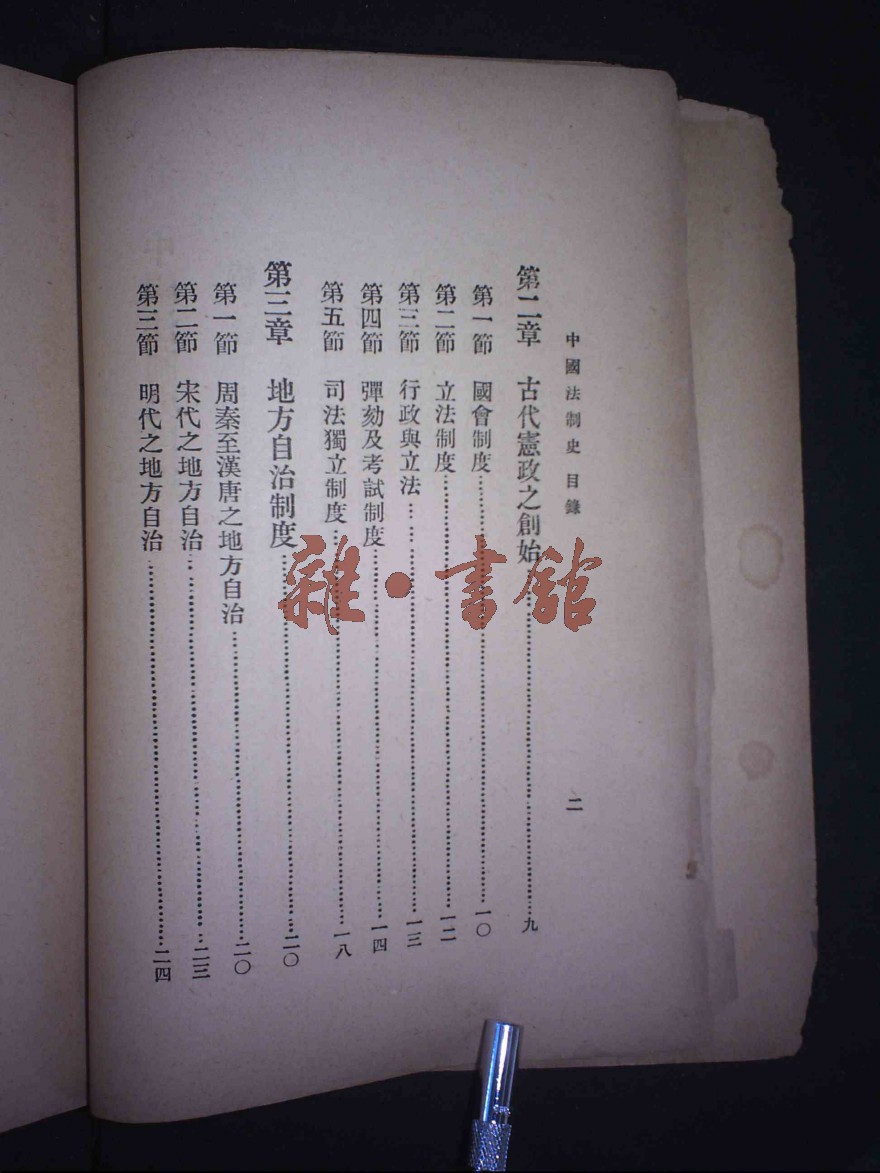 中國法制史 目錄 二
第二章 古代憲政之創始……九
第一節 國會制度……一〇
第二節 立法制度……一二
第三節 行政與立法……一三
第四節 彈劾及考試制度……一四
第五節 司法獨立制度……一八
第三章 地方自治制度……二〇
第一節 周秦至漢唐之地方自治……二〇
第二節 宋代之地方自治……二三
第三節 明代之地方自治……二四
雜·書館